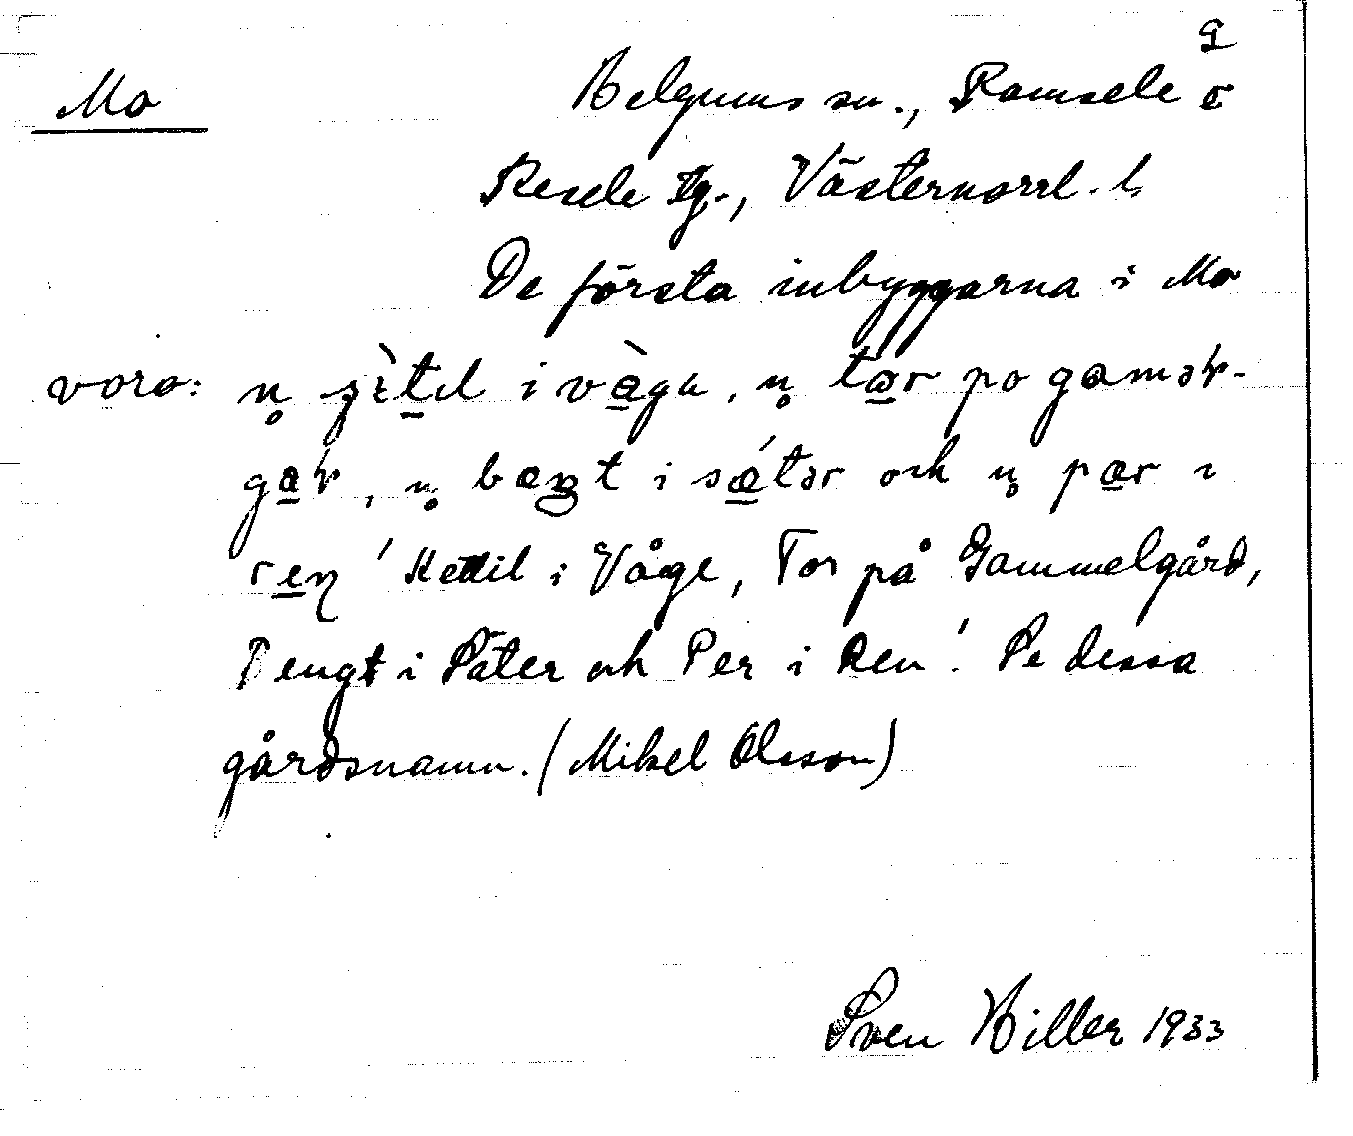 Mo
Helgums sn., Ramsele o
Resele tg., Västernorrl. l.
De första inbyggarna i Mo
voro: n̥ i vàga, n̥ tar po gamał-
gał, n̥ i sǽtər och n̥ pær i
ren ' Kettil i Våge, Tor på Gammelgård,
Bengt i Säter och Per i Ren'. Se dessa
gårdsnamn. (Mikel Olsson)
Sven Hiller 1933